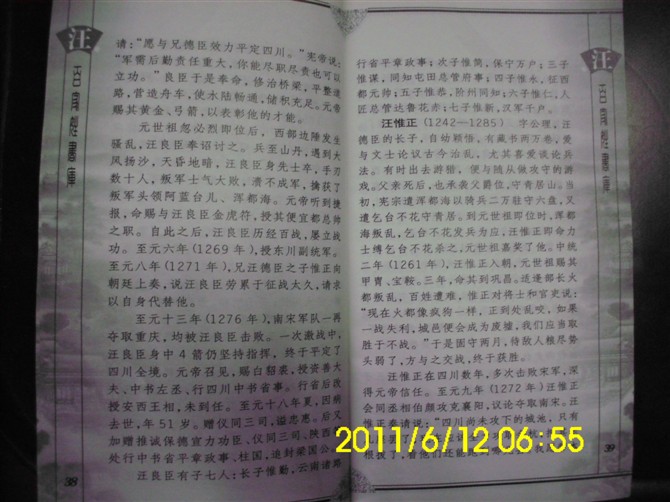 汪
请:“愿与兄德臣效力平定四川。”宪帝说:
“军需后勤责任重大,你能尽职尽责也可以
立功。”良臣于是奉命,修治桥梁,平整道
路,营造舟车,使水陆畅通,储积充足。元帝
赐其黄金、弓箭,以表彰他的才能。
元世祖忽必烈即位后,西部边陲发生
骚乱,汪良臣奉诏讨之。兵至山丹,遇到大
风扬沙,天昏地暗,汪良臣身先士卒,手刃
数十人,叛军士气大败,溃不成军,擒获了
叛军头领阿蓝台儿、浑都海。元帝听到捷
报,命赐与汪良臣金虎符,授其便宜都总帅
之职。自此之后,汪良臣历经百战,屡立战
功。至元六年(1269年),授东川副统军。
至元八年(1271年),兄汪德臣之子惟正向
朝廷上奏,说汪良臣劳累于征战太久,请求
以自身代替他。
至元十三年(1276年),南宋军队一再
夺取重庆,均被汪良臣击败。一次激战中,
汪良臣身中4箭仍坚持指挥,终于平定了
四川全境。元帝召见,赐白貂裘,授资善大
夫、中书左丞、行四川中书省事。行省后改
授安西王相,未到任。至元十八年夏,因病
去世,年51岁。赠仪同三司,谥忠惠。后又
加赠推诚保德宣力功臣、仪同三司、陕西等
处行中书省平章政事、柱国,追封梁国公。
汪良臣有子七人:长子惟勤,云南诸路
38
汪
行省平章政事;次子惟简,保宁万户;三子
惟谋,同知屯田总管府事;四子惟永,征西
都元帅;五子惟恭,阶州同知;六子惟仁,人
匠总管达鲁花赤;七子惟新,汉军千户。
汪惟正(1242—1285) 字公理,汪
德臣的长子,自幼颖悟,有藏书两万卷,爱
与文士论议古今治乱,尤其喜爱谈论兵
法。有时出去游猎,便与随从做攻守的游
戏。父亲死后,也承袭父爵位,守青居山。当
初,宪宗遣浑都海以骑兵二万驻守六盘,又
遣乞台不花守青居。到元世祖即位时,浑都
海叛乱,乞台不花发兵为应,汪惟正即命力
士缚乞台不花杀之,元世祖嘉奖了他。中统
二年(1261年),汪惟正入朝,元世祖赐其
甲胄、宝鞍。三年,命其到巩昌。适逢部长火
都叛乱,百姓遭难,惟正对将士和官吏说:
“现在火都像疯狗一样,正到处乱咬,如果
一战失利,城邑便会成为废墟,我们应当取
胜于不战。”于是固守两月,待敌人粮尽势
头弱了,方与之交战,终于获胜。
汪惟正在四川数年,多次击败宋军,深
得元帝信任。至元九年(1272年)汪惟正
会同丞相伯颜攻克襄阳,议论夺取南宋。汪
惟正奏请说:“四川尚未攻下的城池,只有
39
2011/6/12 06:55